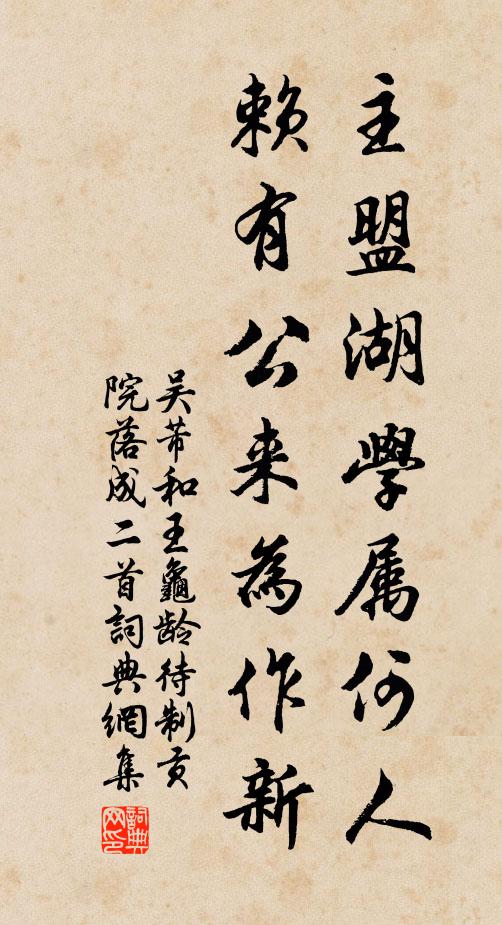 主盟湖學属何人
赖有公来為作新
吴芾和王龜龄待制贡
院落成二首詞典網集
詞典网印